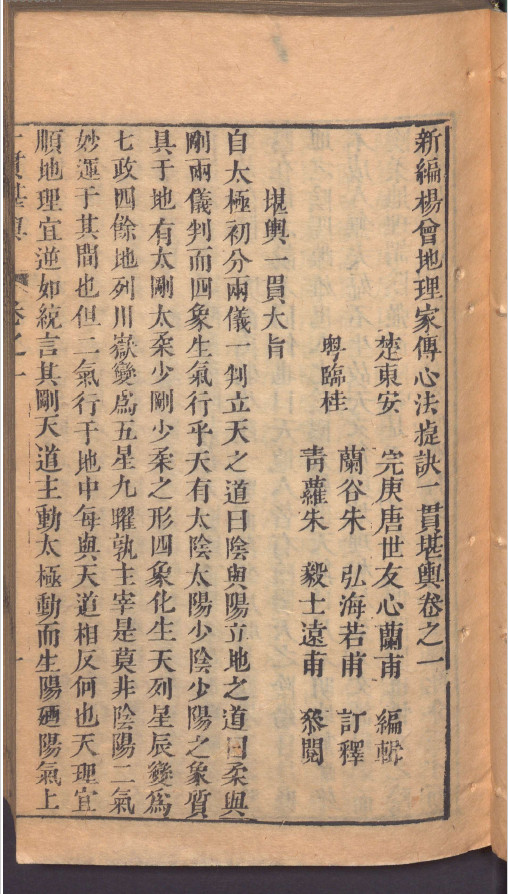 新編楊曾地理家傳心法捷訣一貫堪輿卷之一
楚東安 完庚唐世友心蘭甫 編輯
蘭谷朱 弘海若甫 訂釋
粤臨桂
青蘿朱 毅士遠甫 叅閱
堪輿一貫大旨
自太極初分兩儀一判立天之道曰陰與陽立地之道曰柔與
剛兩儀判而四象生氣行乎天有太陰太陽少陰少陽之象質
具于地有太剛太柔少剛少柔之形四象化生天列星辰變爲
七政四餘地列川嶽變爲五星九曜孰主宰是莫非陰陽二氣
妙運于其間也但二氣行于地中每與天道相反何也天理宜
順地理宜逆如統言其剛天道主動太極動而生陽廼陽氣上
一貫堪輿 卷之一 一